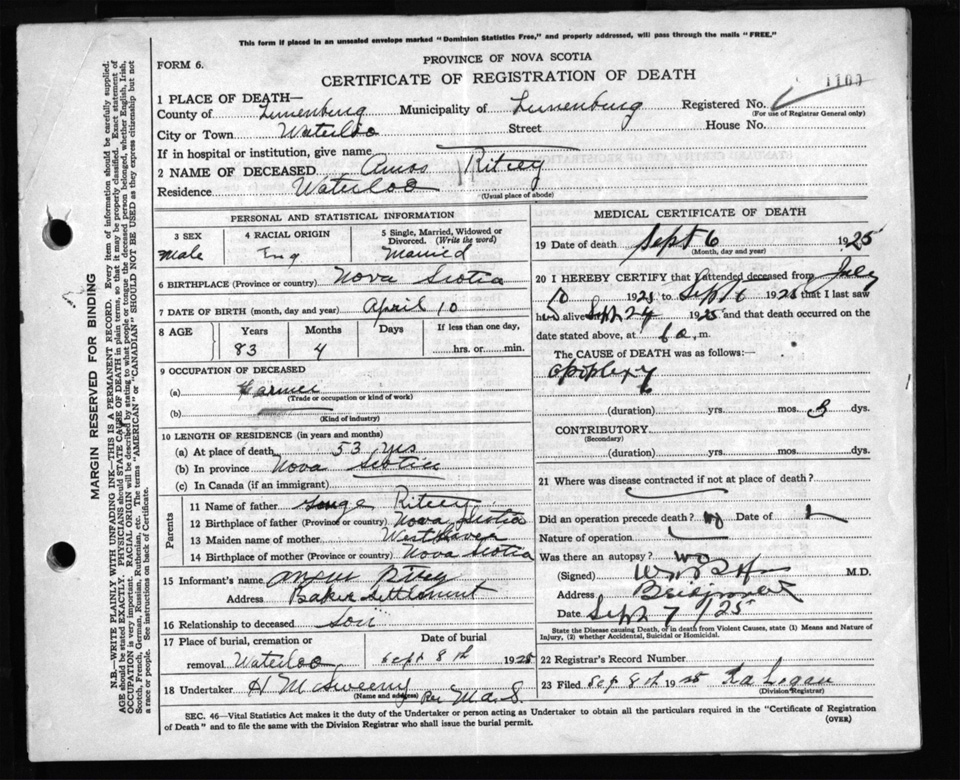 This form if placed in an unsealed envelope marked "Dominion Statistics Free," and properly addressed, will pass through the mails "FREE."
PROVINCE OF NOVA SCOTIA
FORM 6.
CERTIFICATE OF REGISTRATION OF DEATH
1100
1 PLACE OF DEATH—
County of Lunenburg Municipality of Lunenburg Registered No.
(For use of Registrar General only)
City or Town Waterloo Street House No.
If in hospital or institution, give name
2 NAME OF DECEASED Amos Ritcey
Residence Waterloo
(Usual place of abode)
PERSONAL AND STATISTICAL INFORMATION
3 SEX 4 RACIAL ORIGIN 5 Single, Married, Widowed or Divorced. (Write the word)
Male Eng Married
6 BIRTHPLACE (Province or country) Nova Scotia
7 DATE OF BIRTH (month, day and year) April 10
8 AGE Years Months Days If less than one day,
83 4 hrs. or min.
9 OCCUPATION OF DECEASED
(a) Farmer
(Trade or occupation or kind of work)
(b)
(Kind of industry)
10 LENGTH OF RESIDENCE (in years and months)
(a) At place of death 53 yrs
(b) In province Nova Scotia
(c) In Canada (if an immigrant)
Parents
11 Name of father George Ritcey
12 Birthplace of father (Province or country) Nova Scotia
13 Maiden name of mother Westhaver
14 Birthplace of mother (Province or country) Nova Scotia
15 Informant's name Ritcey
Address Baker Settlement
16 Relationship to deceased Son
17 Place of burial, cremation or Date of burial
removal Waterloo Sept 8th 1925
18 Undertaker H McSweeny Per M.A.S.
(Name and address)
MEDICAL CERTIFICATE OF DEATH
19 Date of death Sept 6 1925
(Month, day and year)
20 I HEREBY CERTIFY that I attended deceased from July
10 1925 to Sept 6 1925 that I last saw
him alive Sept 24 1925 and that death occurred on the
date stated above, at 6 a. m.
The CAUSE OF DEATH was as follows:—
apoplexy
(duration) yrs. mos. 3 dys.
CONTRIBUTORY
(Secondary)
(duration) yrs. mos. dys.
21 Where was disease contracted if not at place of death?
Did an operation precede death? no Date of
Nature of operation
Was there an autopsy?
(Signed) M.D.
Address Bridgewater
Date Sept 7 /25
State the Disease causing Death, or in death from Violent Causes, state (1) Means and Nature of Injury, (2) whether Accidental, Suicidal or Homicidal.
22 Registrar's Record Number
23 Filed Sep 8th 1925 Logan
(Division Registrar)
SEC. 46—Vital Statistics Act makes it the duty of the Undertaker or person acting as Undertaker to obtain all the particulars required in the "Certificate of Registration
of Death" and to file the same with the Division Registrar who shall issue the burial permit.
(OVER)
MARGIN RESERVED FOR BINDING
N.B.—WRITE PLAINLY WITH UNFADING INK—THIS IS A PERMANENT RECORD. Every item of information should be carefully supplied.
AGE should be stated EXACTLY. PHYSICIANS should STATE CAUSE OF DEATH in plain terms, so that it may be properly classified. Exact statement of
OCCUPATION is very important. RACIAL ORIGIN will be described by stating to what people or tongue the deceased person belonged, whether English, Irish,
Scotch, French, German, Russian, Ruthenian, etc. The terms "AMERICAN" or "CANADIAN" SHOULD NOT BE USED as they express citizenship but not
a race or people. See instructions on back of Certificate.